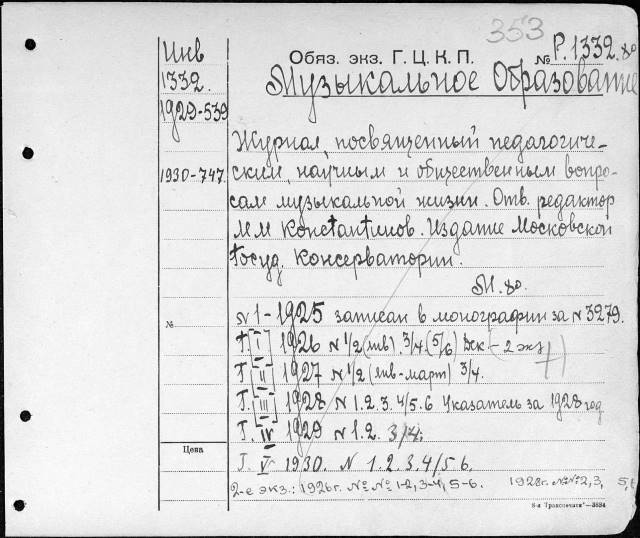 353
Обяз. экз. Г. Ц. К. П. № Р. 1332. 8о
Музыкальное Образование
Инв
1332.
1929-539
1930-747
Журнал, посвященный педагогиче-
ским, научным и общественным вопро-
сам музыкальной жизни. Отв. редактор
М М Константинов. Издание Московской
Госуд Консерватории.
М. 8о.
№
N 1 - 1925 записан в монографии за N 3279.
Т. [I] 1926 N 1/2 (янв). 3/4 (5/6) Дек (- 2 экз)
Т [II] 1927 N 1/2 (янв-март) 3/4.
Т. [III] 1928 N 1. 2. 3. 4/5-6 Указатель за 1928 год
Т. IV 1929 N 1. 2. 3/4;
Цена
Т. V 1930. N 1. 2. 3. 4/5 6.
2-е экз.: 1926 г. №№ 1-2, 3-4, 5-6. 1928 г. №№ 2, 3, 5,6
8-я "Транспечати"—3634